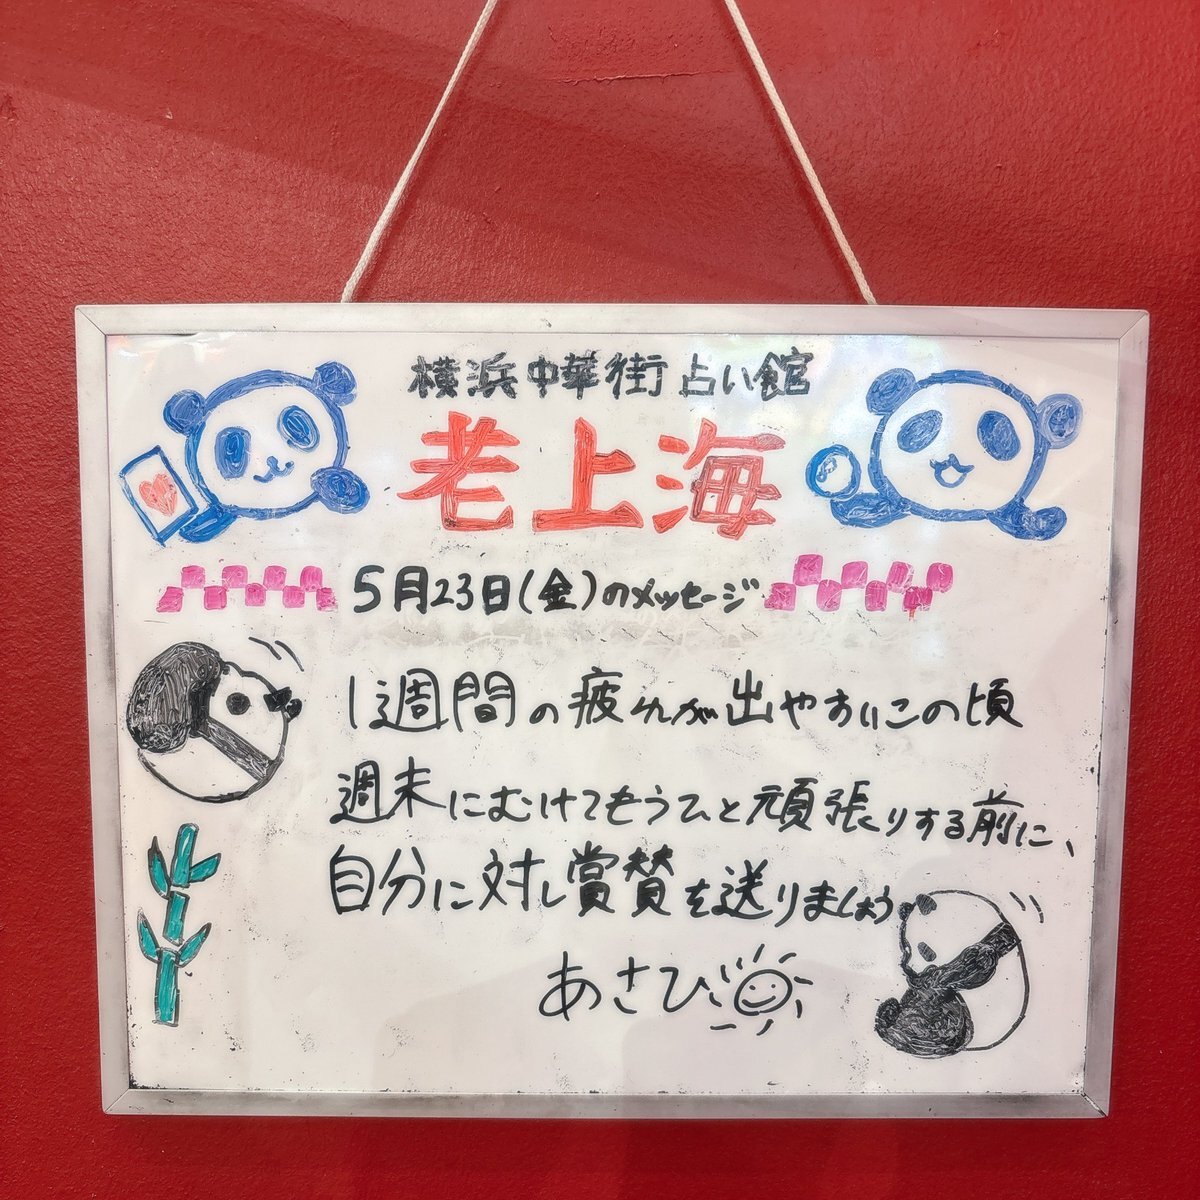 横浜中華街 占い館
老上海
5月23日(金)のメッセージ
1週間の疲れが出やすいこの頃
週末にむけてもうひと頑張りする前に、
自分に対し賞賛を送りましょう
あさひ